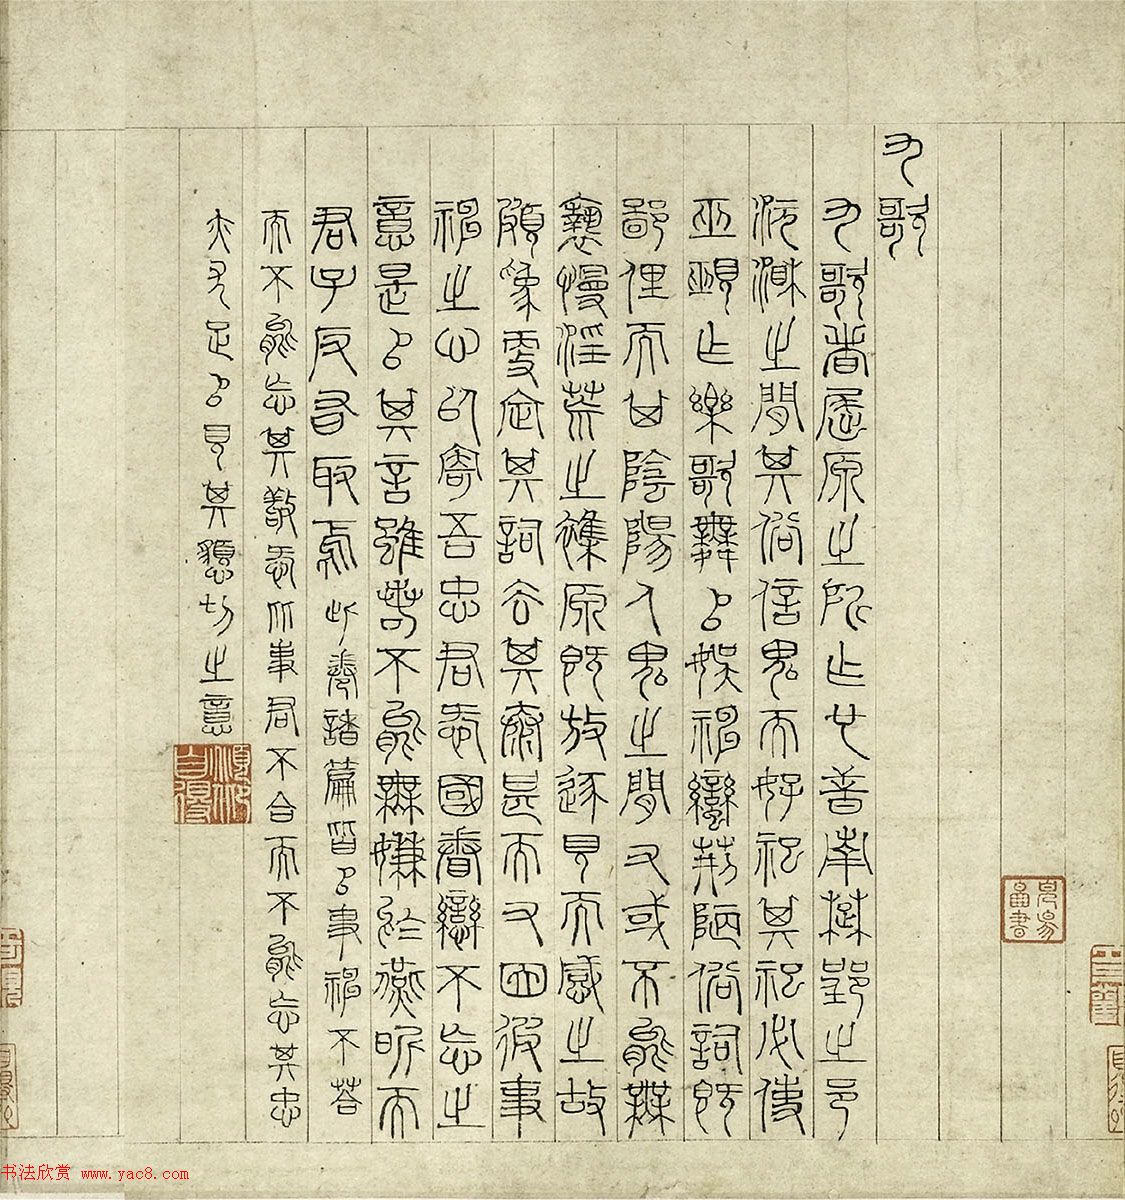 九歌
九歌者屈原之所作也昔南楚郢之邑
沅湘之間其俗信鬼而好祀其祀必使
巫覡作樂歌舞以娛神蠻荊陋俗詞既
鄙俚而其陰陽人鬼之間又或不能無
褻慢淫荒之雜原既放逐見而感之故
頗為更定其詞去其泰甚而又因彼事
神之心以寄吾忠君愛國眷戀不忘之
意是以其言雖若不能無嫌於燕昵而
君子反有取焉此卷諸篇皆以事神不答
而不能忘其敬愛比事君不合而不能忘其忠
赤尤足以見其懇切之意
书法欣赏 www.yac8.com